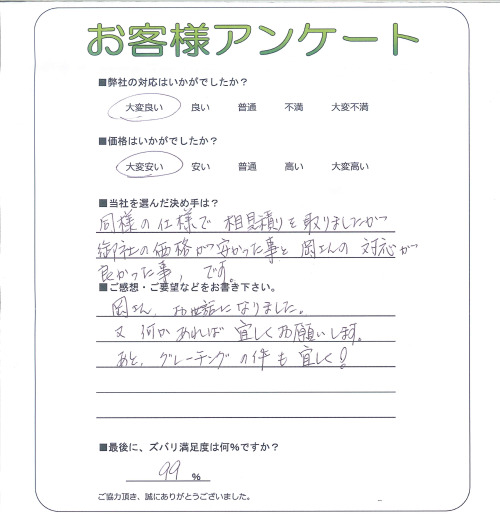 お客様アンケート
■弊社の対応はいかがでしたか？
大変良い 良い 普通 不満 大変不満
■価格はいかがでしたか？
大変安い 安い 普通 高い 大変高い
■当社を選んだ決め手は？
同様の仕様で相見積りを取りましたが
御社の価格が安かった事と岡さんの対応が
良かった事，です。
■ご感想・ご要望などをお書き下さい。
岡さん、お世話になりました。
又何かあれば宜しくお願いします。
あと、グレーチングの件も宜しく！
■最後に、ズバリ満足度は何%ですか？
99 %
ご協力頂き、誠にありがとうございました。